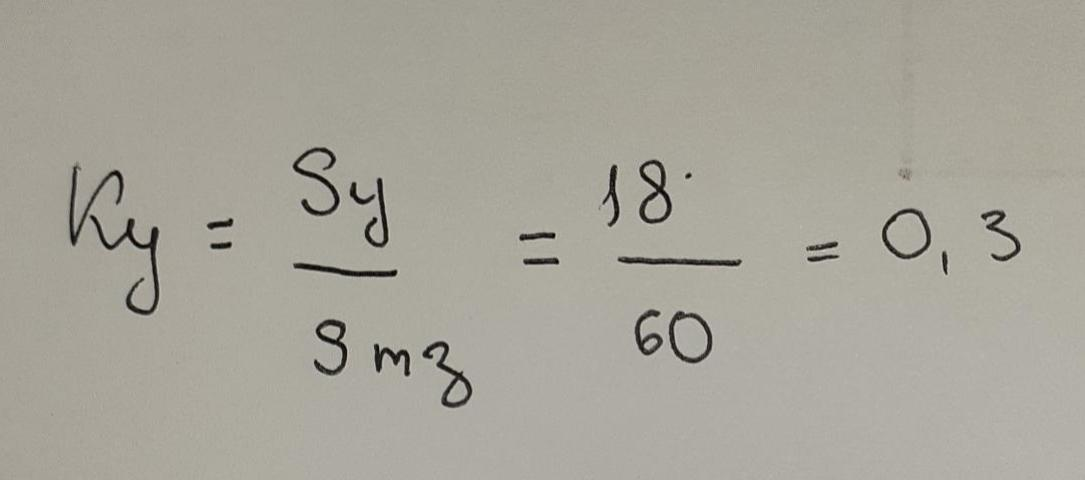 Ky = Sy / Smz = 18 / 60 = 0,3